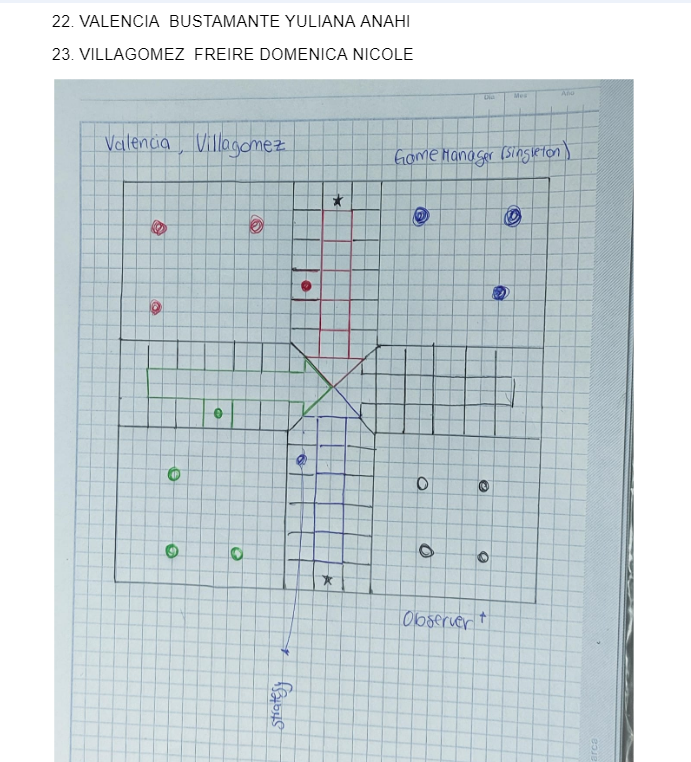 22. VALENCIA BUSTAMANTE YULIANA ANAHI
23. VILLAGOMEZ FREIRE DOMENICA NICOLE
Día Mes Año
Valencia, Villagomez
GameManager (singleton)
Observer
Strategy